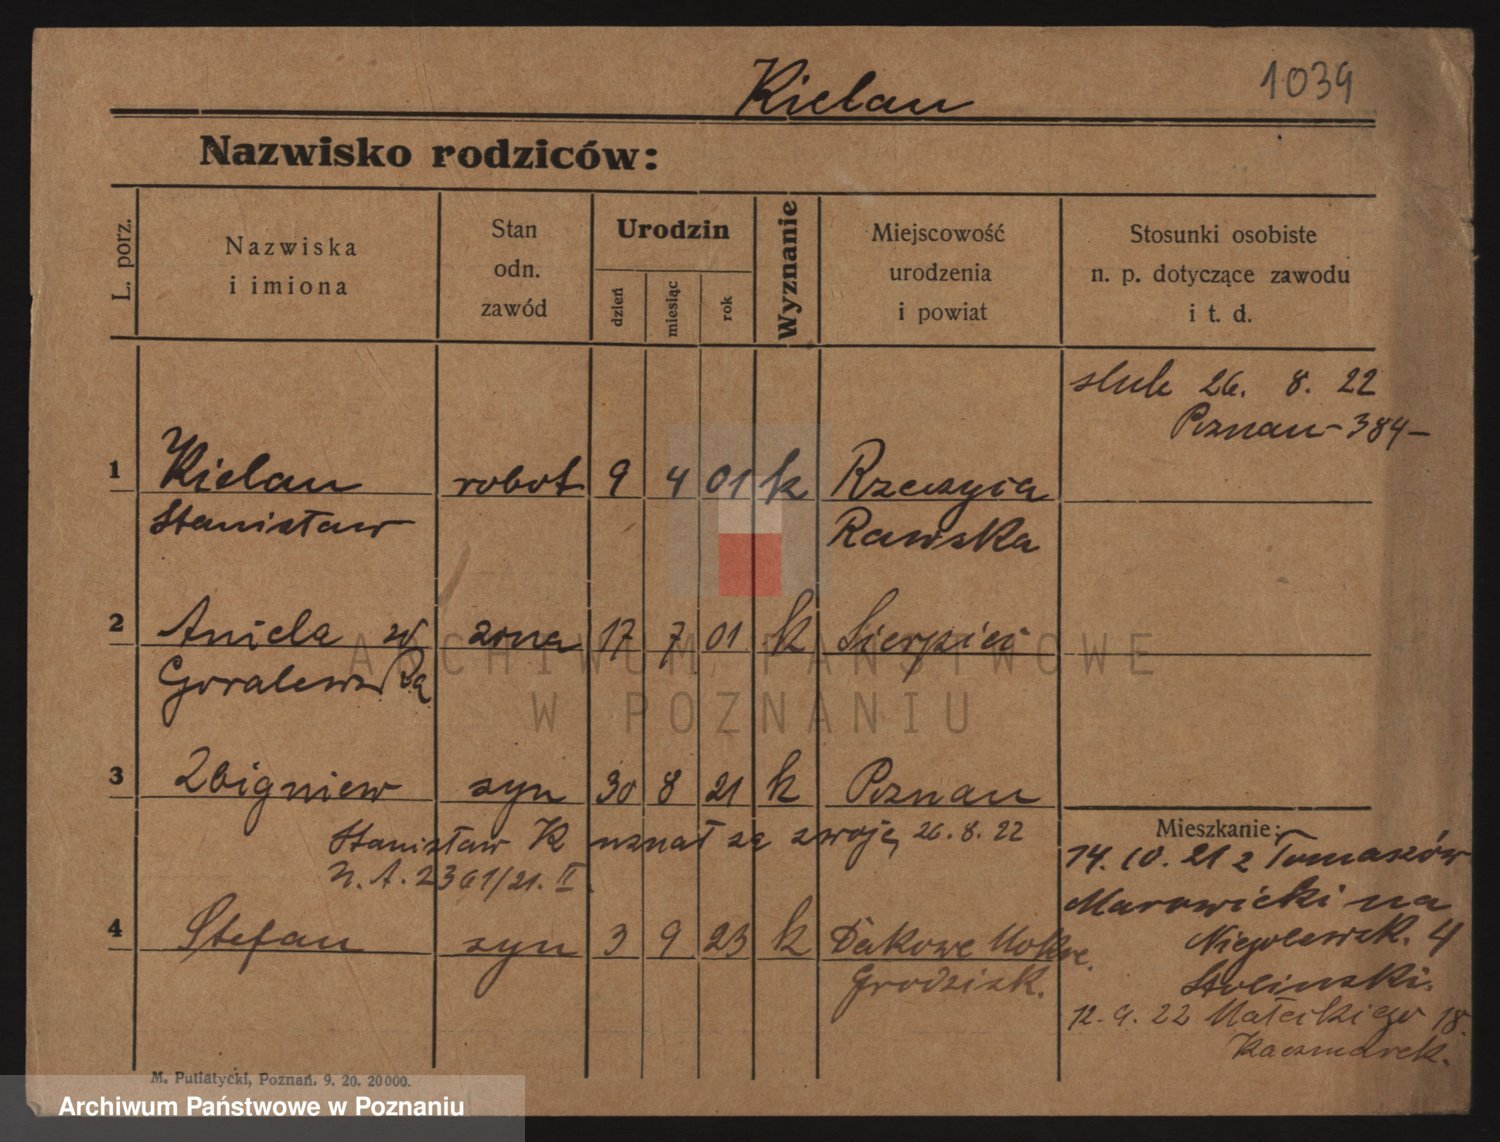 Kielan 1039
Nazwisko rodziców:
L. porz.
Nazwiska
i imiona
Stan
odn.
zawód
Urodzin
dzień
miesiąc
rok
Wyznanie
Miejscowość
urodzenia
i powiat
Stosunki osobiste
n. p. dotyczące zawodu
i t. d.
slub 26. 8. 22
Poznan - 384 -
1 Kielan robot 9 4 01 k Rzeczyca
Stanisław Rawska
2 Aniela z żona 17 7 01 k Sierpien
Goralewska
3 Zbigniew syn 30 8 21 k Poznan
Stanisław K uznał za swoję 26. 8. 22
N. A. 2361/21. II.
4 Stefan syn 3 9 23 k Dakowe Mokre.
Grodzisk.
Mieszkanie:
14. 10. 21 z Tomaszów
Marowicki na
Niegolewsk. 4
Stolinski.
12. 9. 22 Małeckiego 18.
Kaczmarek.
M. Putiatycki, Poznań. 9. 20. 20000.
ARCHIWUM PAŃSTWOWE
W POZNANIU
Archiwum Państwowe w Poznaniu